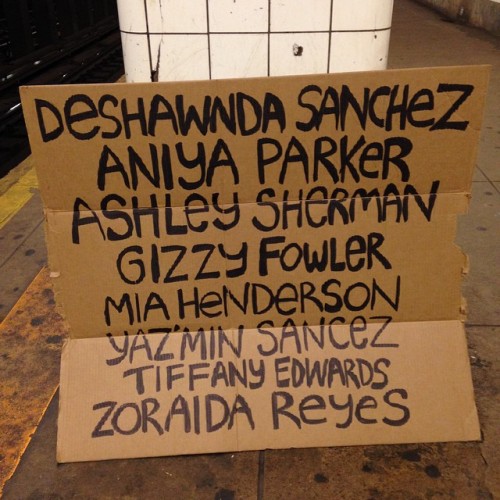 DESHAWNDA SANCHEZ
ANIYA PARKER
ASHLEY SHERMAN
GIZZY FOWLER
MIA HENDERSON
YAZ'MIN SANCEZ
TIFFANY EDWARDS
ZORAIDA REYES